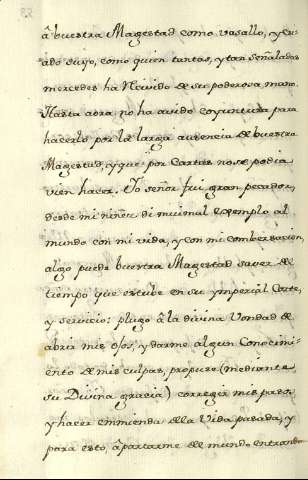 â buestra Magestad como vasallo, y cri-
ado suyo, como quien tantas, y tan señaladas
mercedes ha recivido de su poderosa mano.
Hasta aora no ha avido coyuntura para
hacerlo por la larga ausencia de buestra
Magestad, y que por Cartas no se podia
vien hacer. Yo señor fui gran pecador,
desde mi niñez di mui mal exemplo al
mundo con mi vida, y con mi combersacion,
algo puede buestra Magestad saver de
tiempo que estube en su ymperial Corte,
y servicio: plugo â la divina Vondad de
abrir mis ojos, y darme algun Conocimi-
ento de mis culpas, propuse (mediante
su Divina gracia) corregir mis pasos,
y hacer enmienda de la Vida pasada, y
para esto, âpartarme del mundo entrando